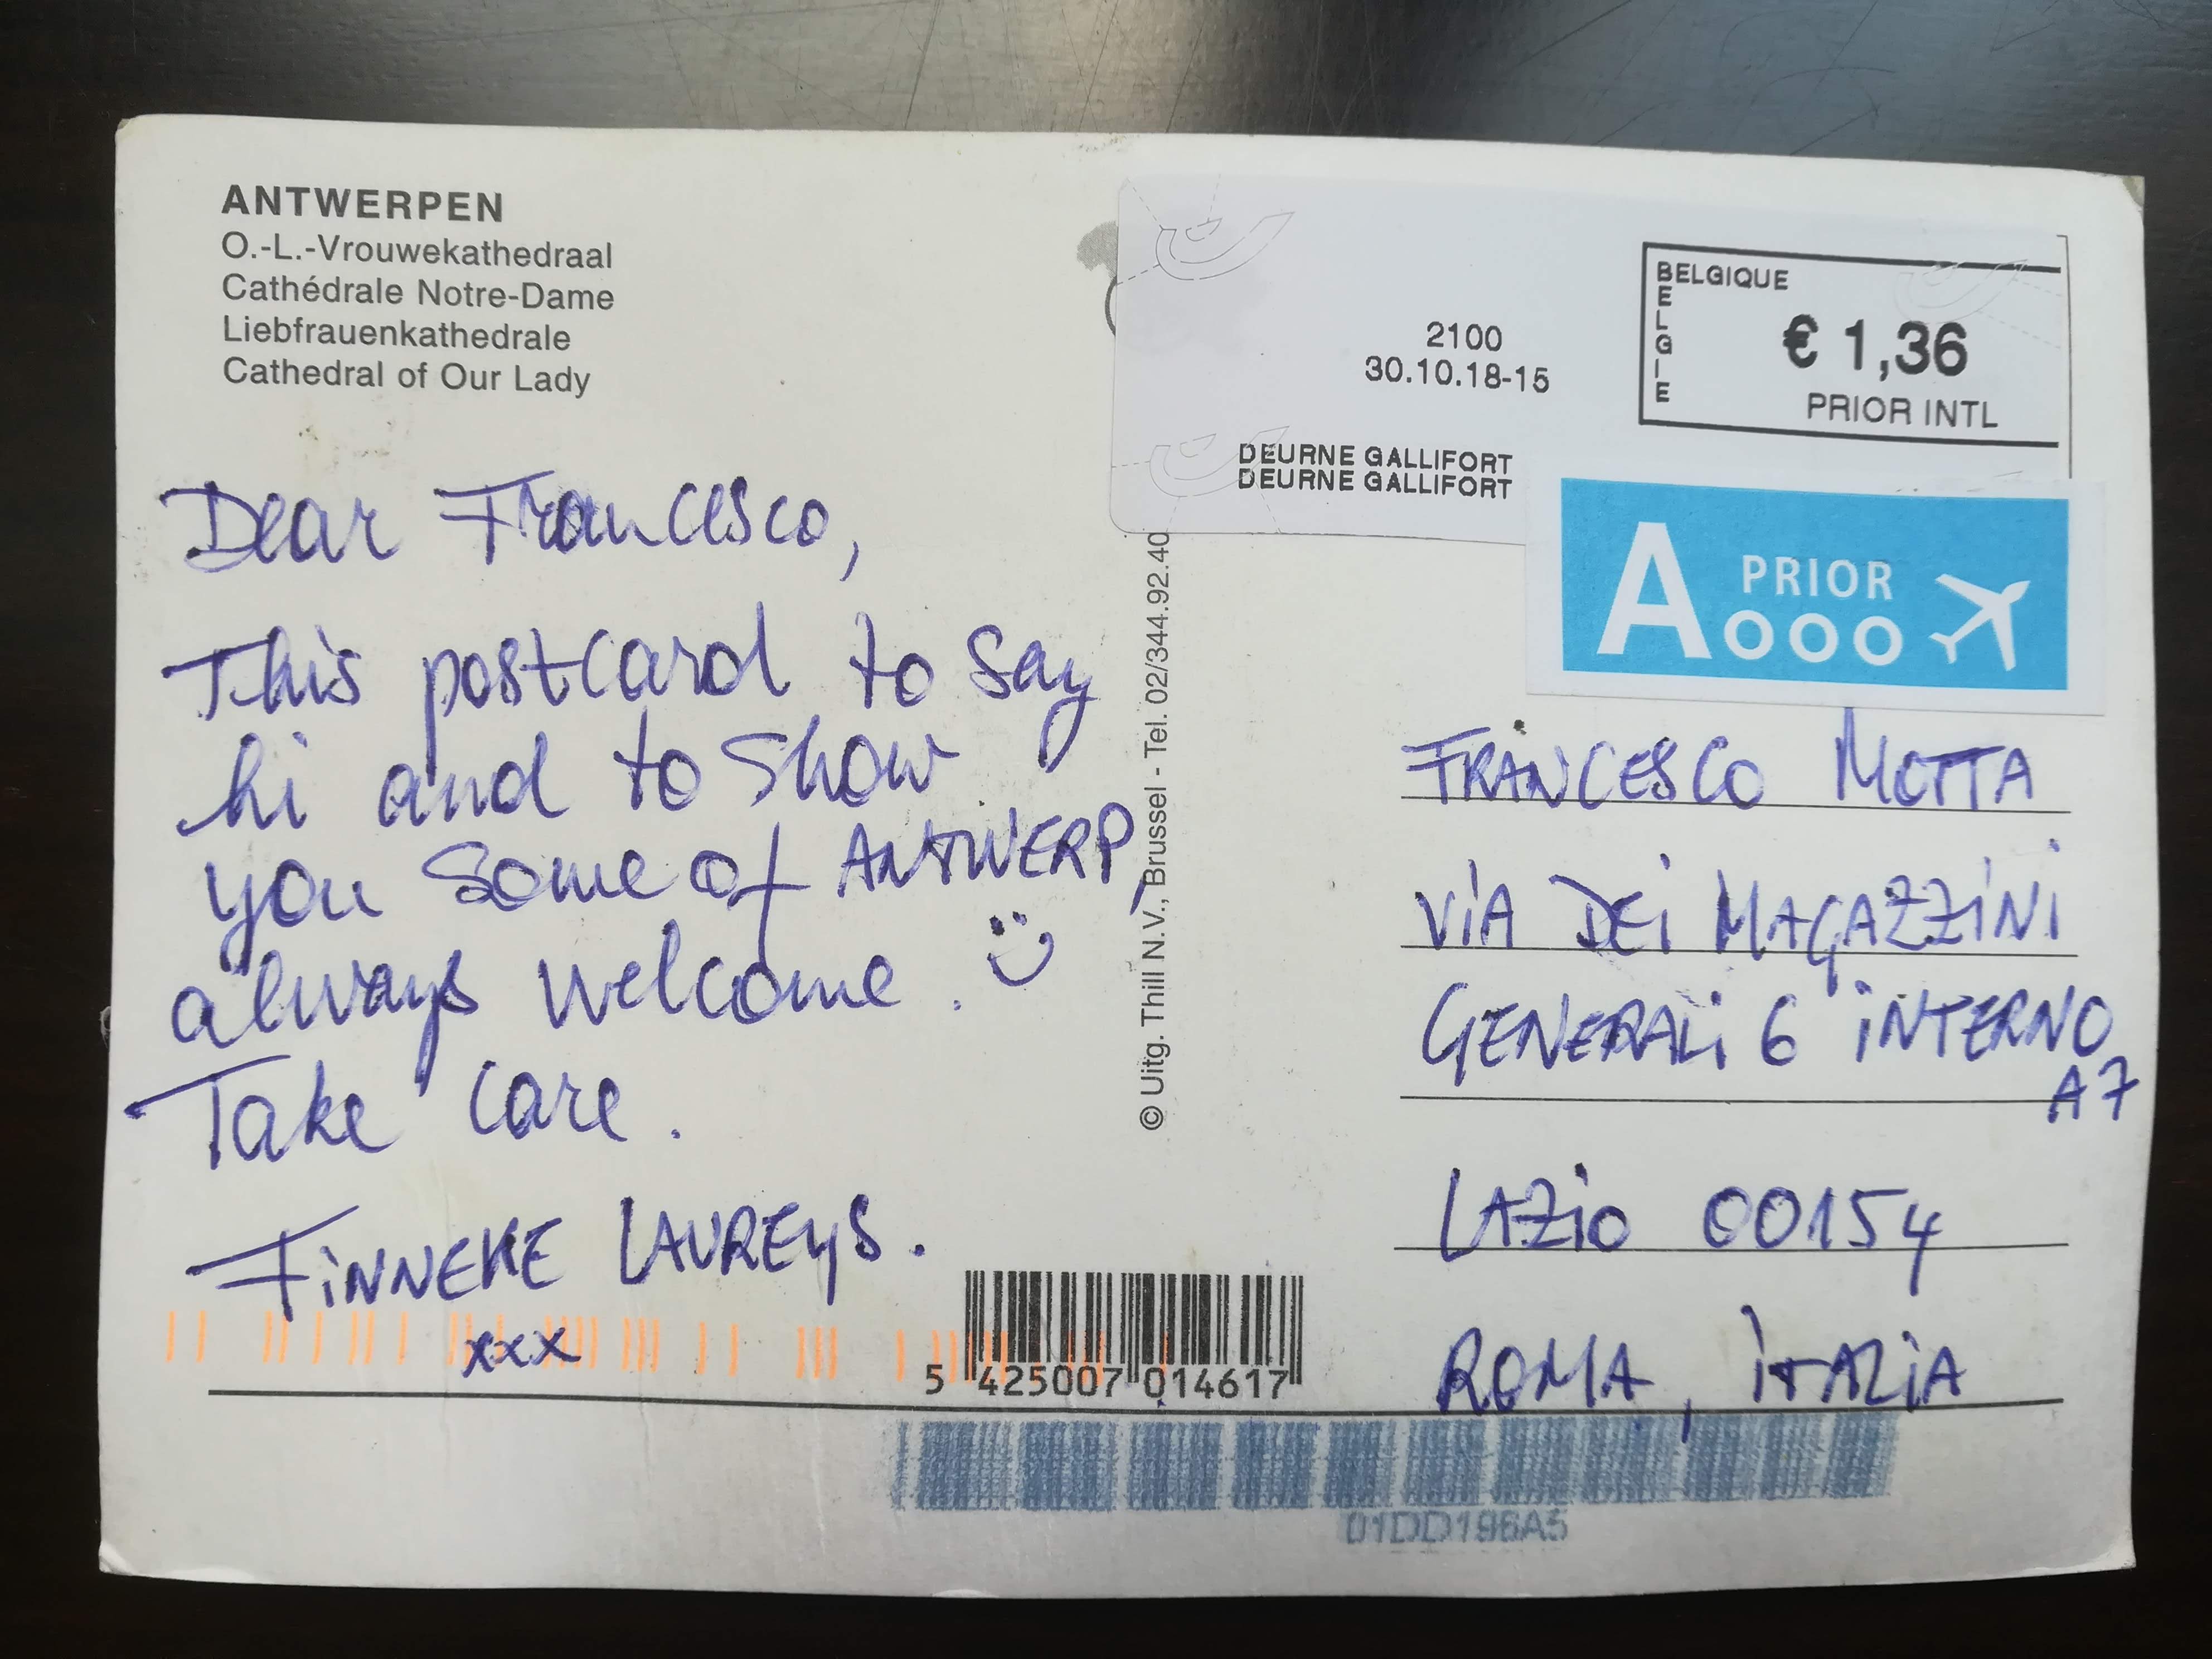 ANTWERPEN
O.-L.-Vrouwekathedraal
Cathédrale Notre-Dame
Liebfrauenkathedrale
Cathedral of Our Lady
Dear Francesco,
This postcard to say
hi and to show
you some of ANTWERP,
always welcome. :)
Take care.
FiNNEKE LAUREYS.
xxx
5 425007 014617
© Uitg. Thill N.V., Brussel - Tel. 02/344.92.40
2100
30.10.18-15
DEURNE GALLIFORT
DEURNE GALLIFORT
BELGIQUE
BELGIE
€ 1,36
PRIOR INTL
A PRIOR
FRANCESCO MOTTA
ViA DEi MAGAZZiNi
GENERALi 6 iNTERNO
A7
LAZiO 00154
ROMA, iTALiA
01DD196A5